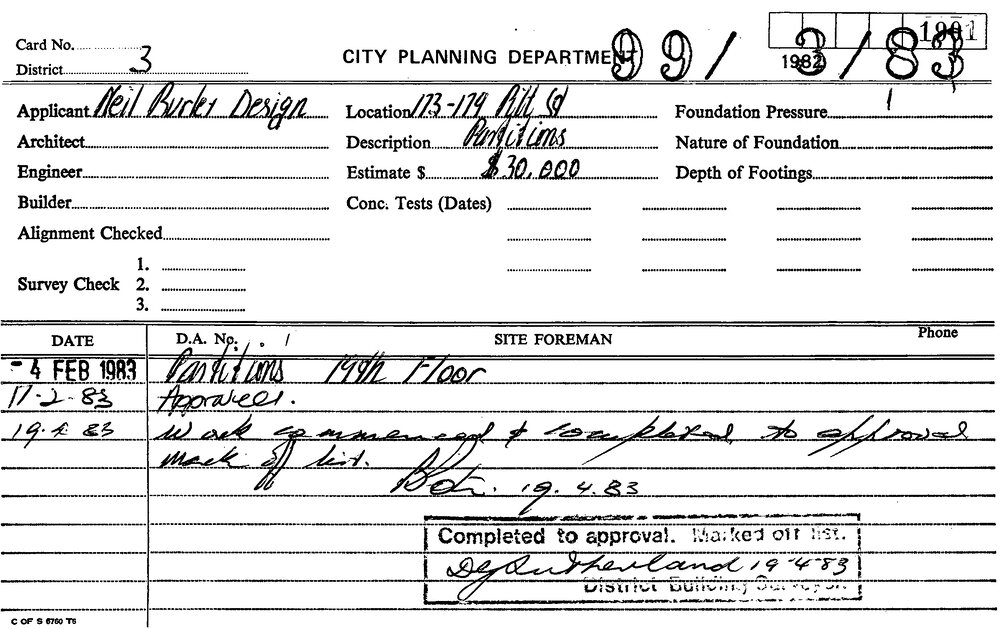 1981
Card No.
District 3
CITY PLANNING DEPARTMENT
1982
99/3/83
Applicant Neil Burley Design
Location 173-179 Pitt St
Foundation Pressure
Architect
Description Partitions
Nature of Foundation
Engineer
Estimate $ $30,000
Depth of Footings
Builder
Conc. Tests (Dates)
Alignment Checked
Survey Check 1.
2.
3.
DATE D.A. No. SITE FOREMAN Phone
- 4 FEB 1983 Partitions 19th Floor
17-2-83 Approved.
19.4.83 Work commenced & completed to approval
mark off list. 19.4.83
Completed to approval. Marked off list.
DG Sutherland 19-4-83
District Building Surveyor.
C OF S 6760 T6